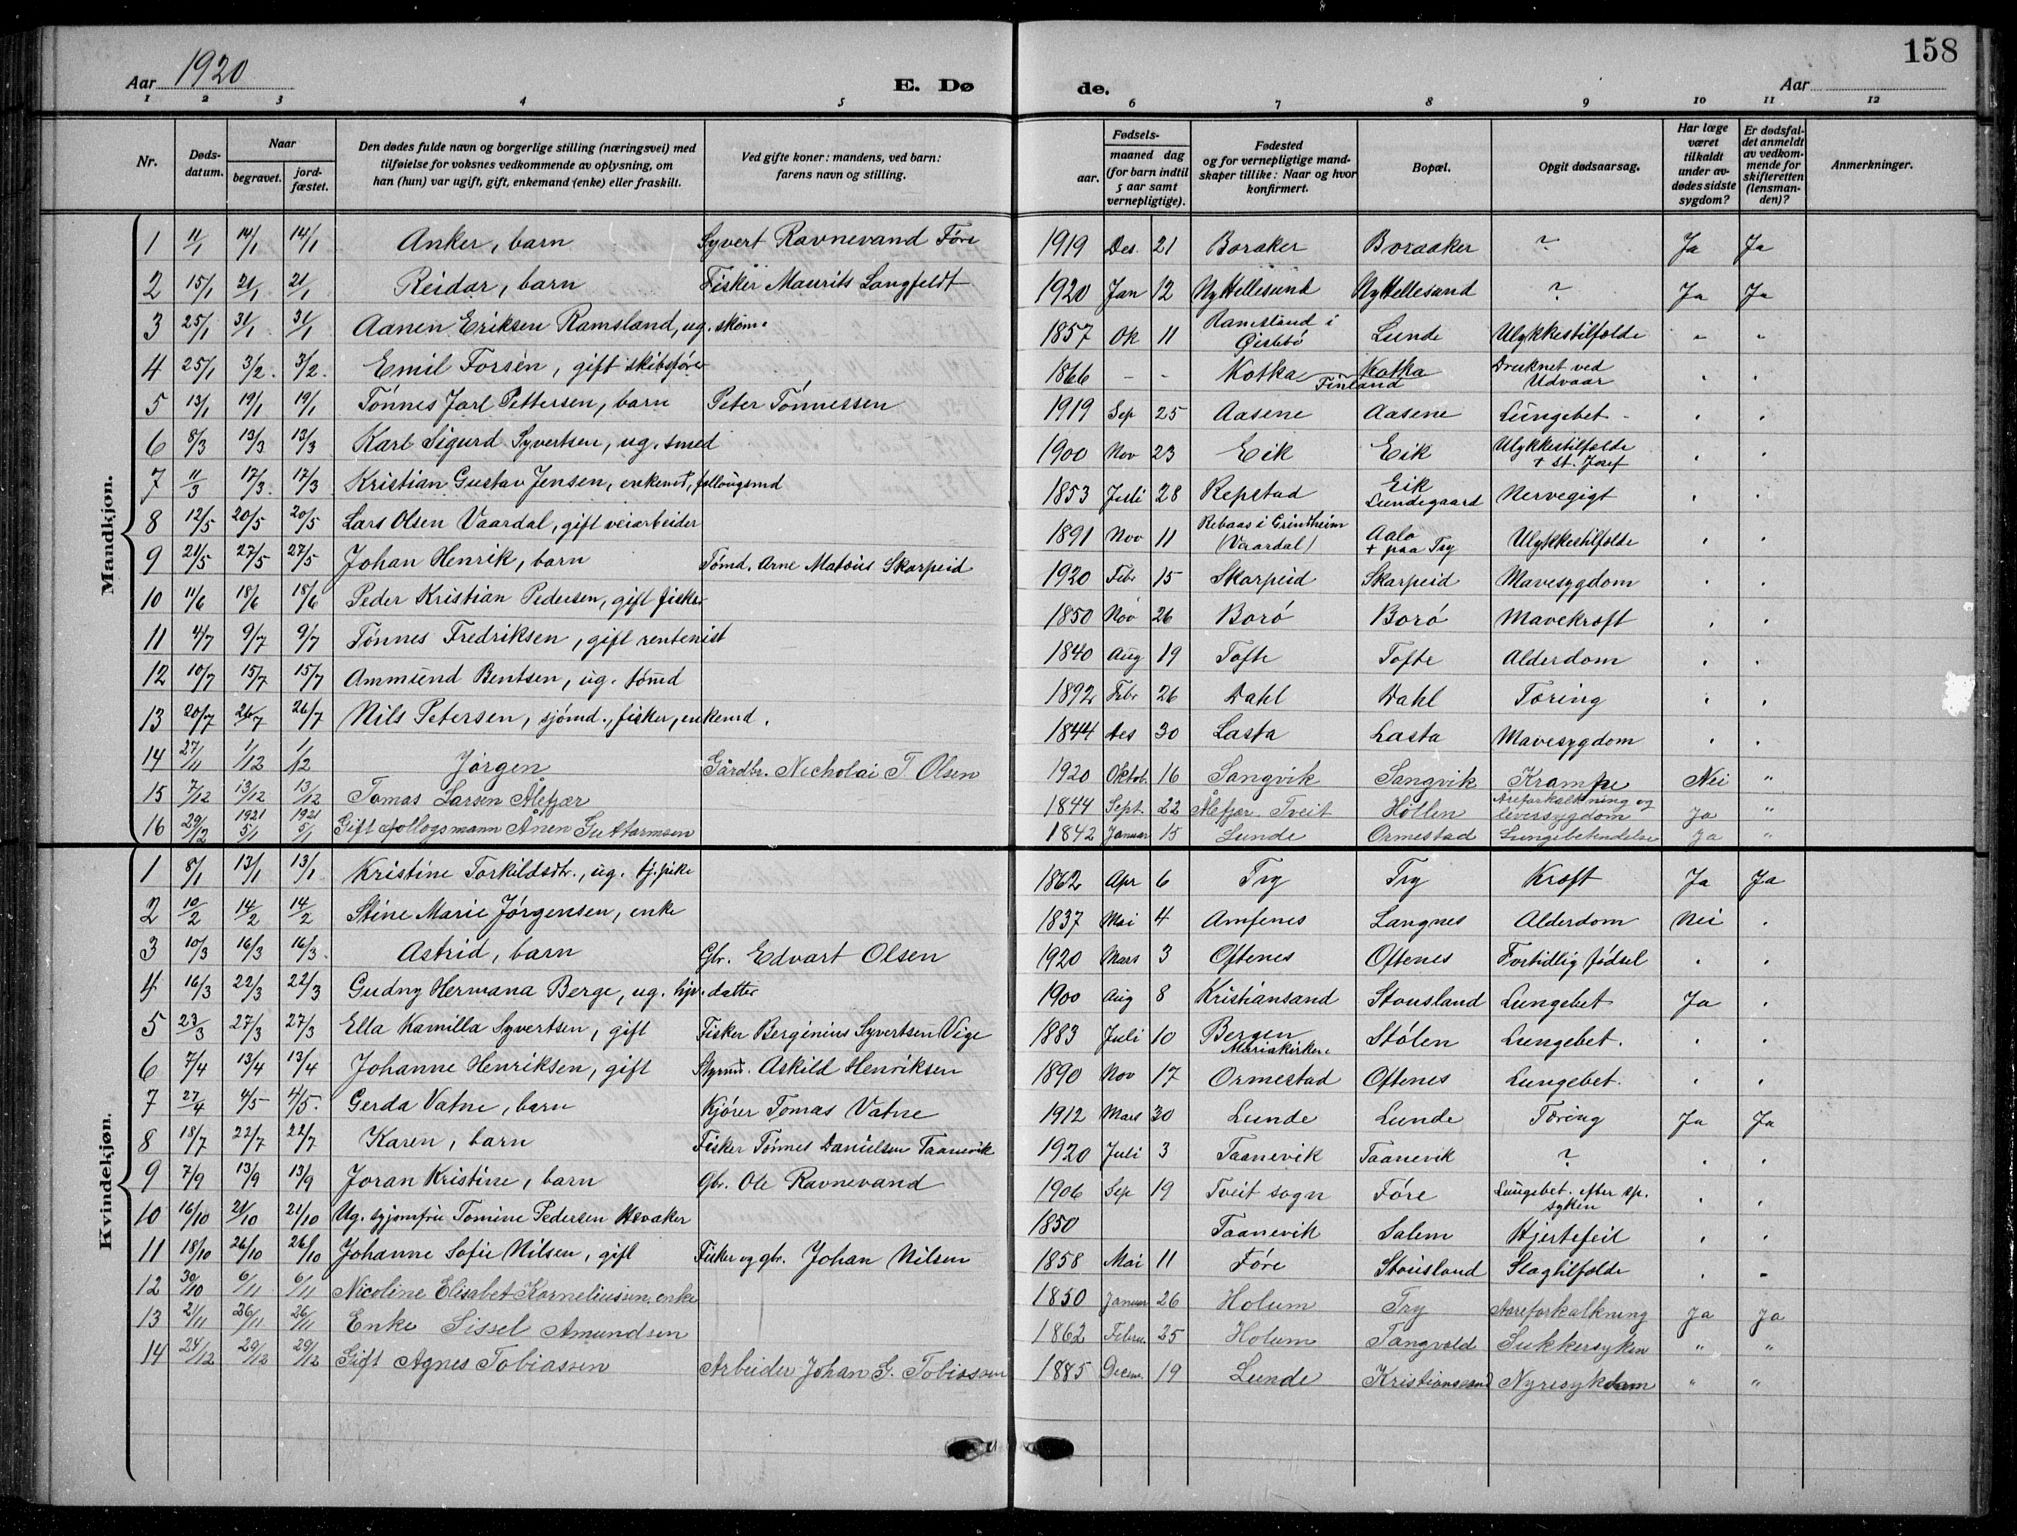 158
Aar 1920 E. Døde. Aar
1 2 3 4 5 6 7 8 9 10 11 12
Nr. Døds-datum. Naar begravet. jord-fæstet. Den dødes fulde navn og borgerlige stilling (næringsvei) med tilføielse for voksnes vedkommende av oplysning, om han (hun) var ugift, gift, enkemand (enke) eller fraskilt. Ved gifte koner: mandens, ved barn: farens navn og stilling. Fødsels- aar. maaned dag (for barn indtil 5 aar samt vernepligtige). Fødested og for vernepligtige mandskaper tillike: Naar og hvor konfirmert. Bopæl. Opgit dødsaarsag. Har læge været tilkaldt under avdødes sidste sygdom? Er dødsfaldet anmeldt av vedkommende for skifteretten (lensmanden)? Anmerkninger.
Mandkjøn.
1 11/1 14/1 14/1 Anker, barn Syvert Ravnevand Føre 1919 Des 21 Boraker Boraaker ? Ja Ja
2 15/1 21/1 21/1 Reidar, barn Fisker Maurits Langfeldt 1920 Jan 12 Ny Hellesund Ny Hellesund ? Ja Ja
3 25/1 31/1 31/1 Aanen Eriksen Ramsland, ug. skom. 1857 Ok 11 Ramsland i Øislebö Lunde Ulykkestilfolde " "
4 25/1 3/2. 3/2. Emil Forsèn, gift skibsfører 1866 - - Kotka Finland Kotka Druknet ved Udvaar
5 13/1 19/1 19/1 Tönnes Jarl Pettersen, barn Peter Tönnessen 1919 Sep 25 Aasene Aasene Lungebet.
6 8/3 13/3 13/3 Karl Sigurd Syvertsen, ug. smed 1900 Nov 23 Eik Eik Ulykkestilfolde + st. Josef
7 11/3 17/3. 17/3 Kristian Gustav Jensen, enkemd, follougsmd 1853 Juli 28 Repstad Eik Lundegaard Nervegigt
8 12/5 20/5 20/5 Lars Olsen Vaardal, gift veiarbeider 1891 Nov 11 Rebaas i Grindheim (Vaardal) Aalo + paa Try Ulykkestilfolde
9 21/5 27/5 27/5 Johan Henrik, barn Tømd. Arne Matæus Skarpeid 1920 Febr 15 Skarpeid Skarpeid Mavesygdom
10 11/6 18/6 18/6 Peder Kristian Pedersen, gift fisker 1850 Nov 26 Borö Borö Mavekræft
11 4/7 9/7 9/7 Tönnes Fredriksen, gift rentenist 1840 Aug 19 Tofte Tofte Alderdom
12 10/7 15/7 15/7 Ammund Bentsen, ug. tömd 1892 Febr 26 Dahl Dahl Tæring
13 20/7 26/7 26/7 Nils Petersen, sjömd., fisker, enkemd. 1844 Des 30 Lasta Lasta Mavesygdom
14 27/11 1/12 1/12 Jørgen Gårdbr. Necholai T. Olsen 1920 Oktob. 16 Sangvik Sangvik Krampe Nei "
15 7/12 13/12 13/12 Tomas Larsen Ålefjær 1844 Sept. 22 Ålefjær Tveit Høllen Åreforkalkning og leversygdom Ja "
16 29/12 1921 5/1 1921 5/1 Gift follogsmann Ånen Guttormsen 1842 Januar 15 Lunde Ormestad Lungebetendelse Ja "
Kvindekjøn.
1 8/1 13/1 13/1 Kristine Torkildsdtr., ug. tj. pike 1862 Apr 6 Try Try Kræft Ja Ja
2 10/2 14/2 14/2 Stine Marie Jørgensen, enke 1837 Mai 4 Amfenes Langnes Alderdom Nei
3 10/3 16/3 16/3. Astrid, barn Gbr. Edvart Olsen 1920 Mars 3 Oftenes Oftenes Fortidlig födsel
4 16/3 22/3 22/3 Gudny Hermana Berge, ug. hjv. datter 1900 Aug 8 Kristiansand Stousland Lungebet Ja
5 23/3 27/3 27/3 Ella Kamilla Syvertsen, gift Fisker Berginius Syvertsen Vige 1883 Juli 10 Bergen Mariakirken Stölen Lungebet.
6 7/4 13/4 13/4 Johanne Henriksen, gift Styrmd. Askild Henriksen 1890 Nov 17 Ormestad Oftenes Lungebet.
7 27/4 4/5 4/5. Gerda Vatne, barn Kjörer Tomas Vatne 1912 Mars 30 Lunde Lunde Tæring Ja Ja
8 18/7 22/7 22/7 Karen, barn Fisker Tönnes Danielsen Taanevik 1920 Juli 3 Taanevik Taanevik ?
9 7/9 13/9 13/9 Joran Kristine, barn Gbr. Ole Ravnevand 1906 Sep 19 Tveit sogn Före Lungebet. efter sp. syken
10 16/10 21/10 21/10 Ug. syjomfru Tomine Pedersen 1850 Taanevik Salem Hjertefeil
11 18/10 26/10 26/10 Johanne Sofie Nilsen, gift Fisker og gbr. Johan Nilsen 1858 Mai 11 Före Stousland Slagtilfolde
12 30/10 6/11 6/11 Nicoline Elisabet Korneliussen, enke 1850 Januar 26 Holum Try Aareforkalkning Ja Ja
13 21/11 26/11 26/11 Enke Sissel Amundsen 1862 Febru. 25 Holum Tangvold Sukkersyken " "
14 24/12 29/12 29/12 Gift Agnes Tobiassen Arbeider Johan G. Tobiassen 1885 Decem. 19 Lunde Kristianssand Nyresykdom " "